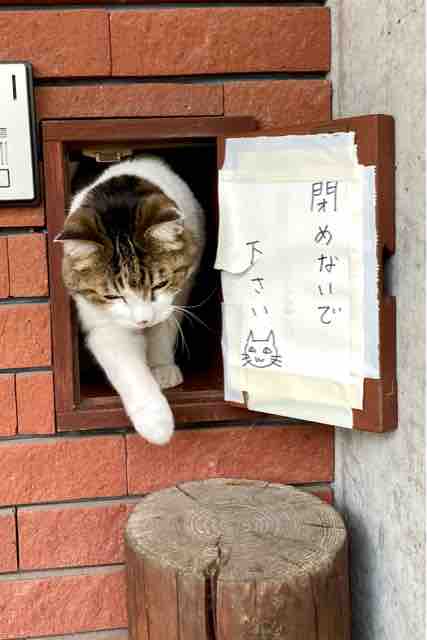 閉めないで
下さい